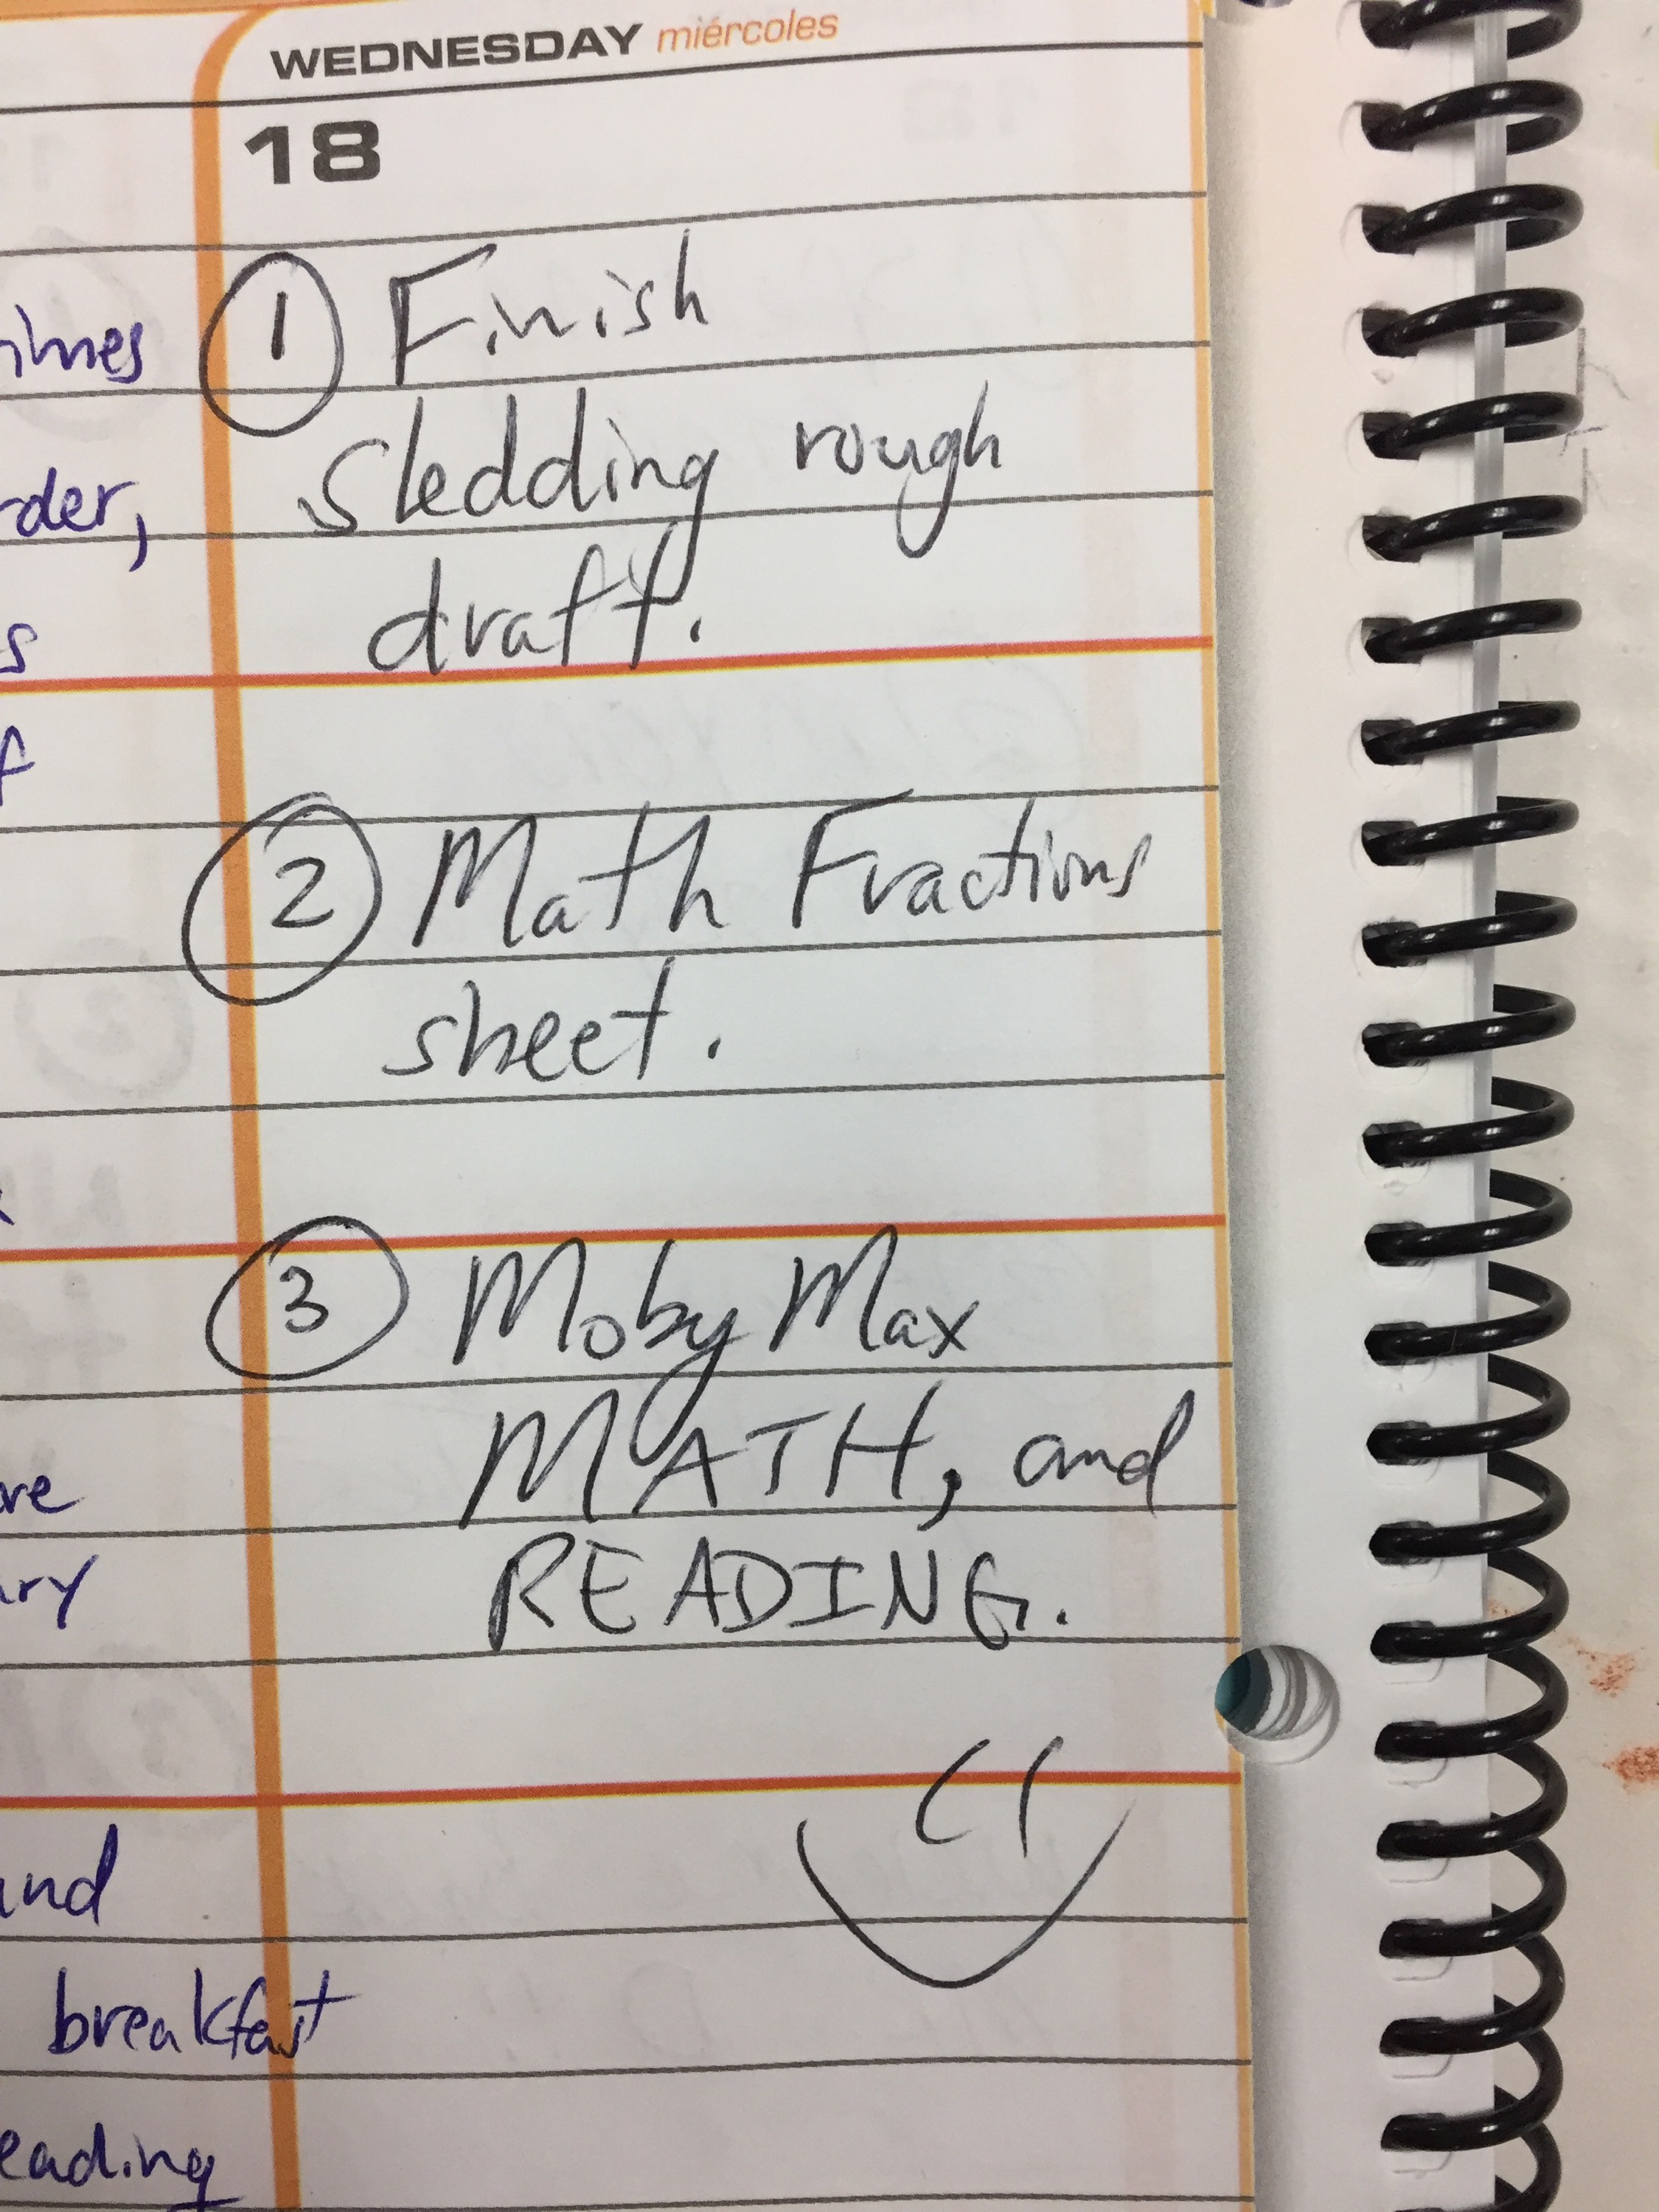 WEDNESDAY miércoles
18
① Finish
sledding rough
draft.
② Math Fractions
sheet.
③ Moby Max
MATH, and
READING.
imes
rder,
s
f
re
ry
and
breakfast
eading